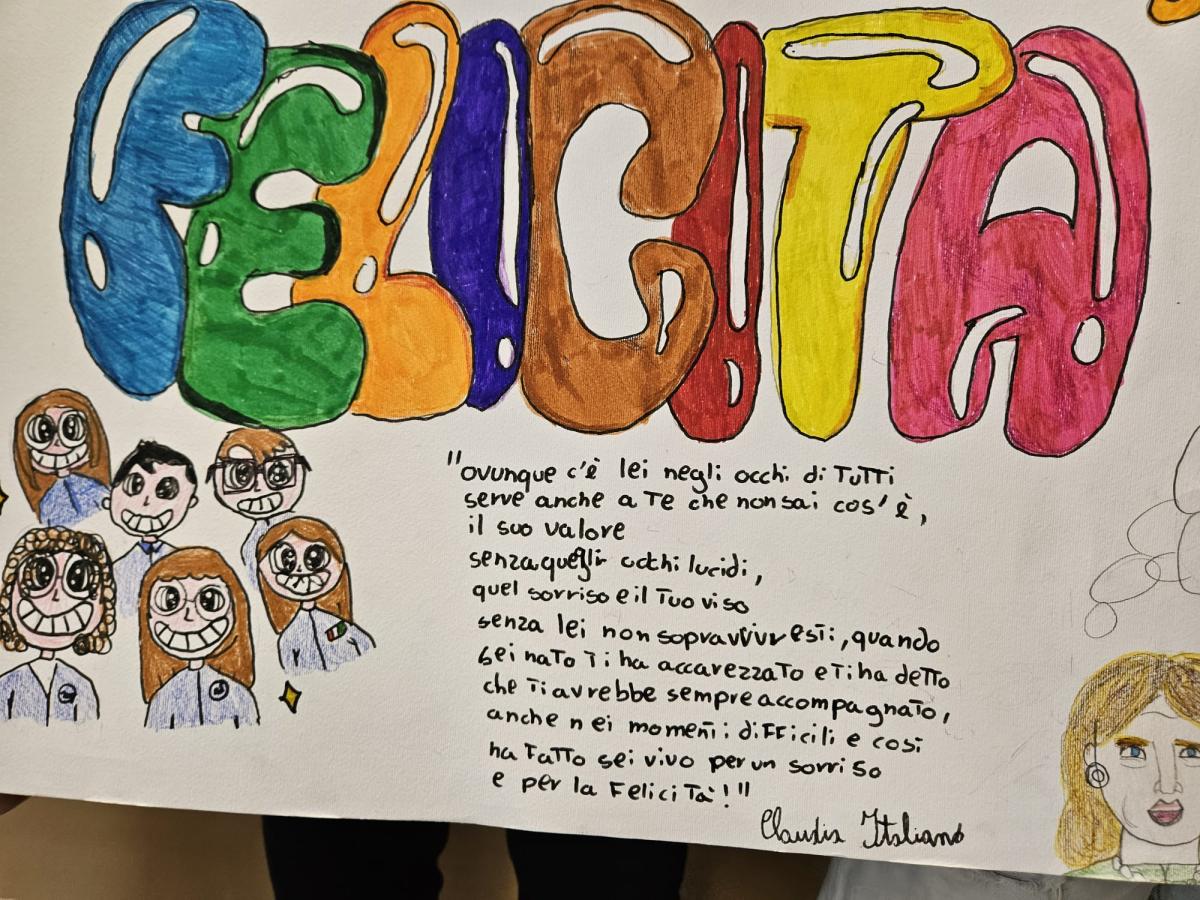 FELICITA
"ovunque c'è lei negli occhi di TUTTI
serve anche a Te che non sai cos'è,
il suo valore
senza quegli occhi lucidi,
quel sorriso e il Tuo viso
senza lei non sopravvivresti, quando
sei nato Ti ha accarezzato e Ti ha detto
che Ti avrebbe sempre accompagnato,
anche nei momenti difficili e così
ha fatto sei vivo per un sorriso
e per la Felicità!"
Claudia Italiano